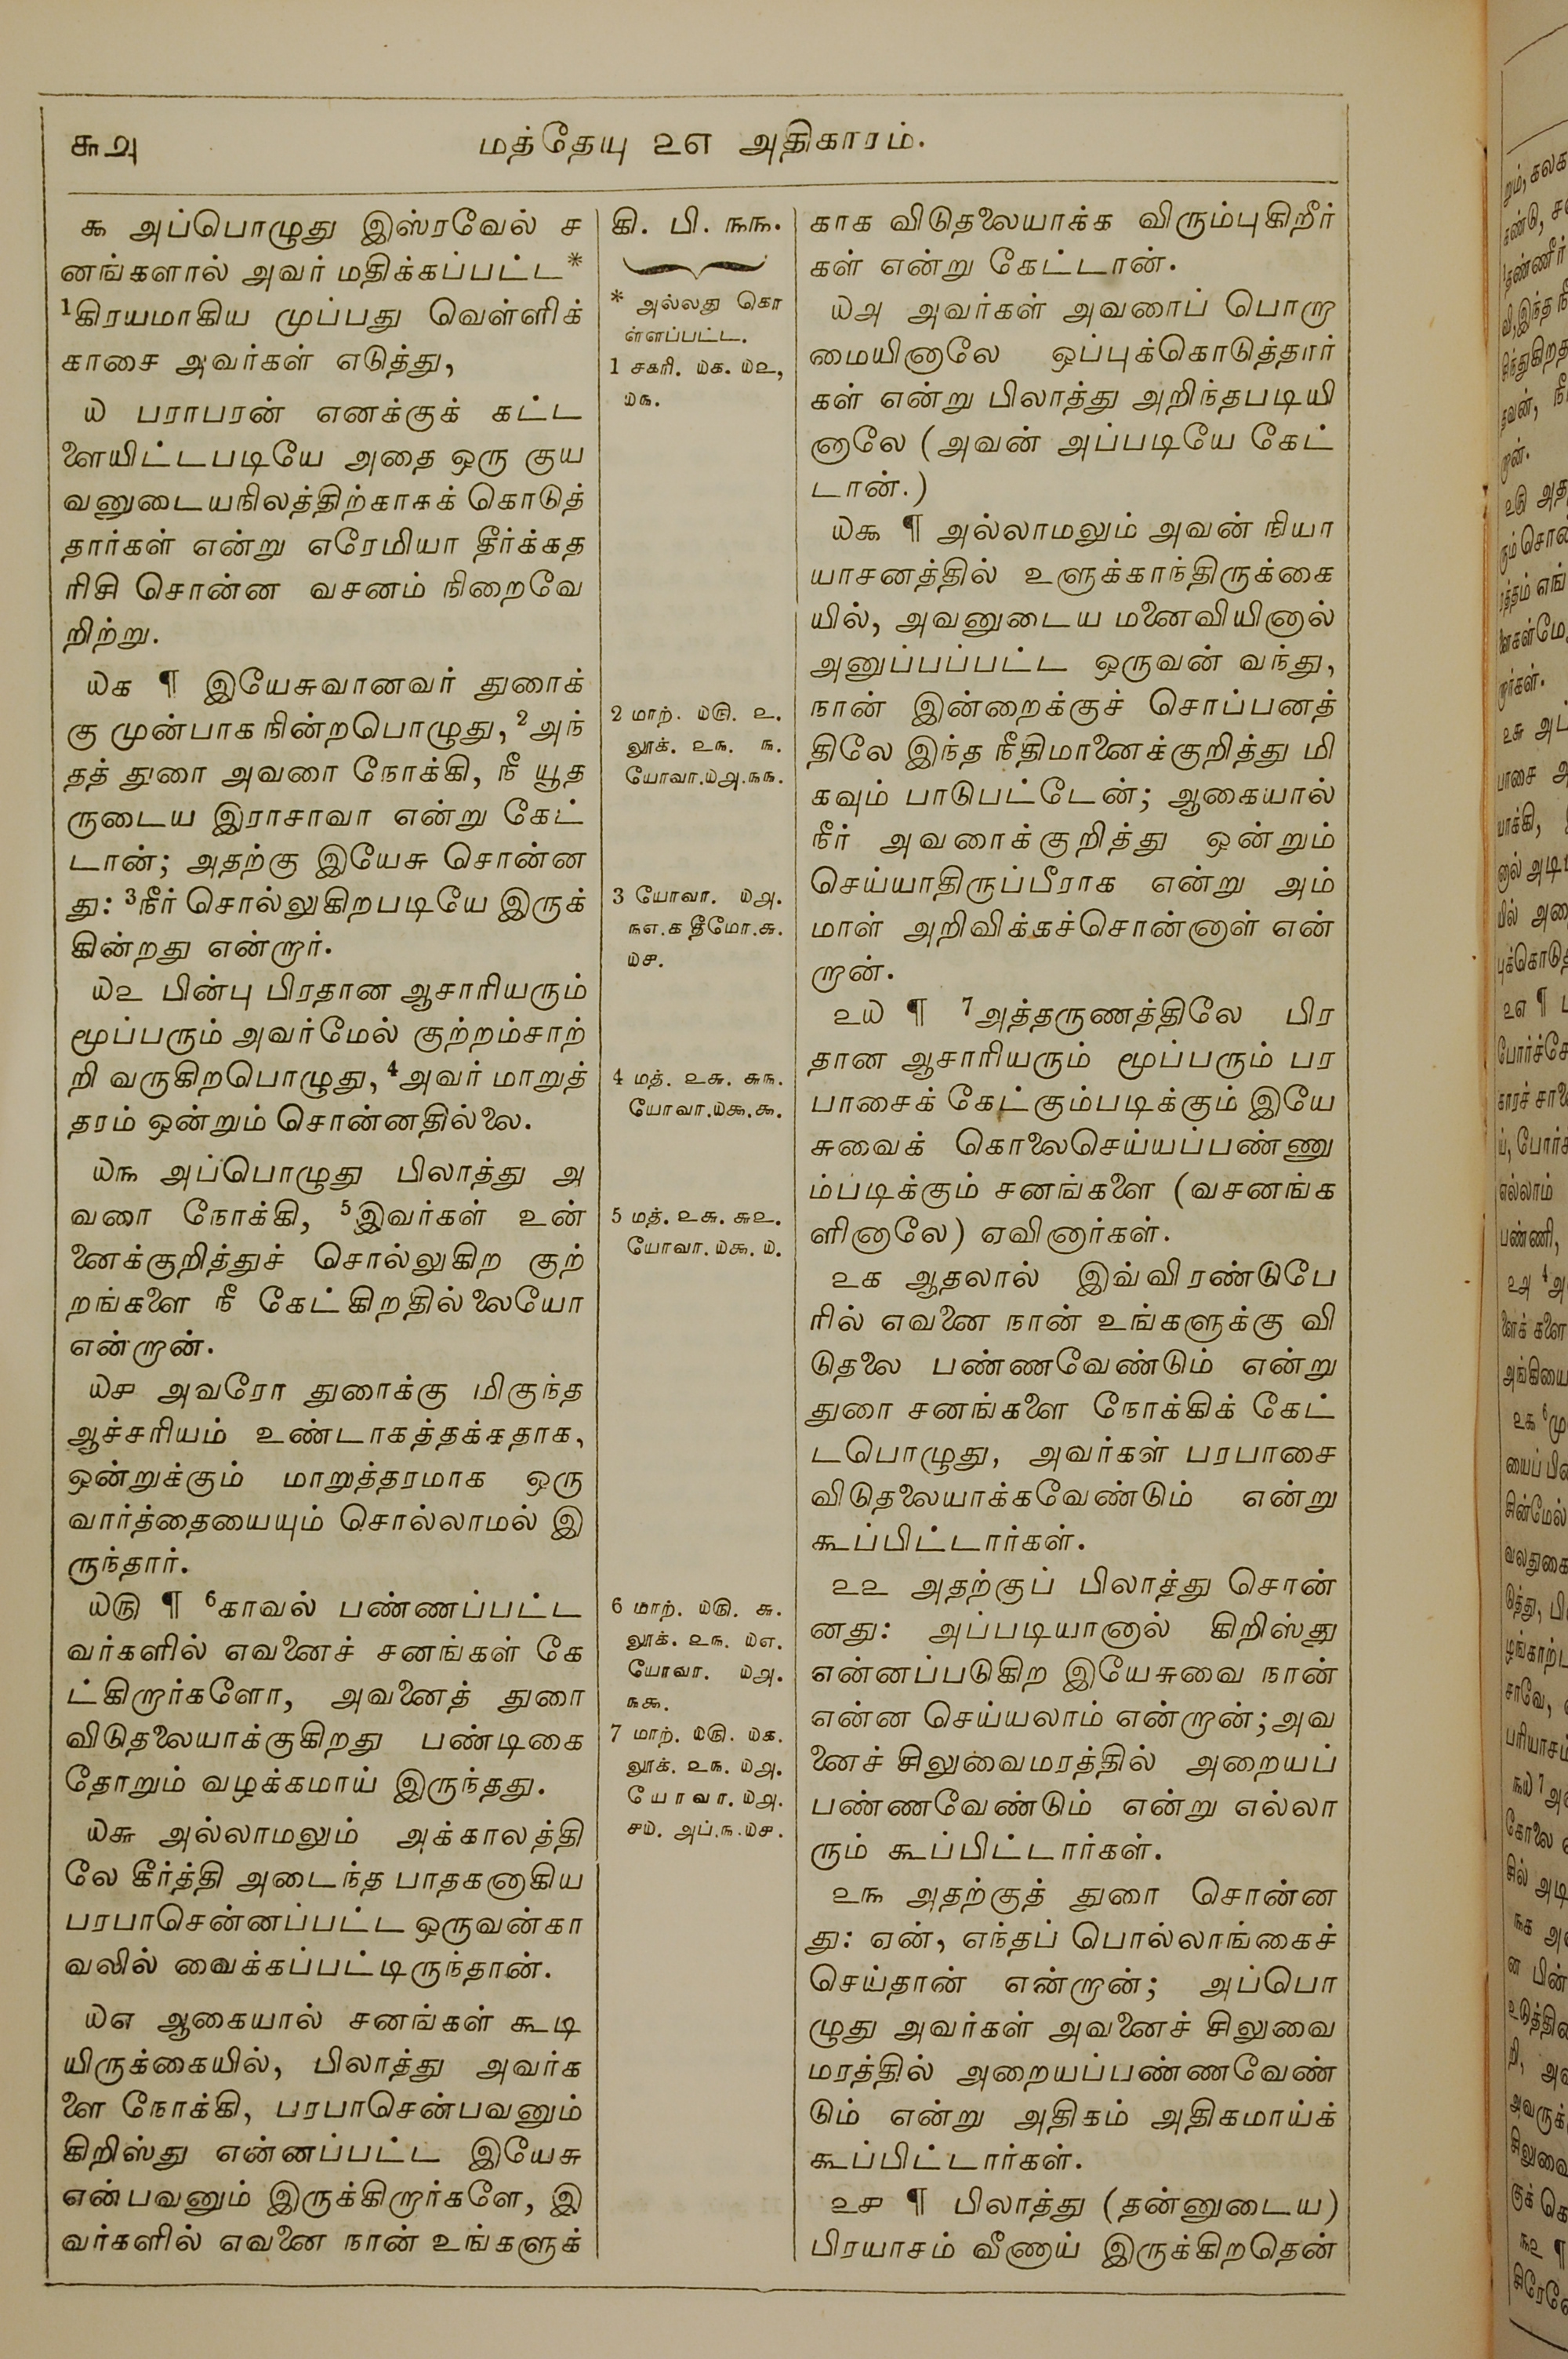 ௬௨ மத்தேயு ௨௭ அதிகாரம்.
௯ அப்பொழுது இஸ்ரவேல் ச
னங்களால் அவர் மதிக்கப்பட்ட*
1கிரயமாகிய முப்பது வெள்ளிக்
காசை அவர்கள் எடுத்து,
௰ பராபரன் எனக்குக் கட்ட
ளையிட்டபடியே அதை ஒரு குய
வனுடையநிலத்திற்காகக் கொடுத்
தார்கள் என்று எரேமியா தீர்க்கத
ரிசி சொன்ன வசனம் நிறைவே
றிற்று.
௰௧ ¶ இயேசுவானவர் துரைக்
கு முன்பாக நின்றபொழுது, 2அந்
தத் துரை அவரை நோக்கி, நீ யூத
ருடைய இராசாவா என்று கேட்
டான்; அதற்கு இயேசு சொன்ன
து: 3நீர் சொல்லுகிறபடியே இருக்
கின்றது என்றார்.
௰௨ பின்பு பிரதான ஆசாரியரும்
மூப்பரும் அவர்மேல் குற்றம்சாற்
றி வருகிறபொழுது, 4அவர் மாறுத்
தரம் ஒன்றும் சொன்னதில்லை.
௰௩ அப்பொழுது பிலாத்து அ
வரை நோக்கி, 5இவர்கள் உன்
னைக்குறித்துச் சொல்லுகிற குற்
றங்களை நீ கேட்கிறதில்லையோ
என்றான்.
௰௪ அவரோ துரைக்கு மிகுந்த
ஆச்சரியம் உண்டாகத்தக்கதாக,
ஒன்றுக்கும் மாறுத்தரமாக ஒரு
வார்த்தையையும் சொல்லாமல் இ
ருந்தார்.
௰௫ ¶ 6காவல் பண்ணப்பட்ட
வர்களில் எவனைச் சனங்கள் கே
ட்கிறார்களோ, அவனைத் துரை
விடுதலையாக்குகிறது பண்டிகை
தோறும் வழக்கமாய் இருந்தது.
௰௬ அல்லாமலும் அக்காலத்தி
லே கீர்த்தி அடைந்த பாதகனாகிய
பரபாசென்னப்பட்ட ஒருவன்கா
வலில் வைக்கப்பட்டிருந்தான்.
௰௭ ஆகையால் சனங்கள் கூடி
யிருக்கையில், பிலாத்து அவர்க
ளை நோக்கி, பரபாசென்பவனும்
கிறிஸ்து என்னப்பட்ட இயேசு
என்பவனும் இருக்கிறார்களே, இ
வர்களில் எவனை நான் உங்களுக்
கி. பி. ௩௩.
* அல்லது கொ
ள்ளப்பட்ட.
1 சகரி. ௰௧. ௰௨,
௰௩.
2 மாற். ௰௫. ௨.
லூக். ௨௩. ௩.
யோவா.௰௮.௩௩.
3 யோவா. ௰௮.
௩௭.௧ தீமோ.௬.
௰௪.
4 மத். ௨௬. ௬௩.
யோவா.௰௯.௯.
5 மத். ௨௬. ௬௨.
யோவா. ௰௯. ௰.
6 மாற். ௰௫. ௬.
லூக். ௨௩. ௰௭.
யோவா. ௰௮.
௩௯.
7 மாற். ௰௫. ௰௧.
லூக். ௨௩. ௰௮.
யோவா. ௰௮.
௪௰. அப்.௩.௰௪.
காக விடுதலையாக்க விரும்புகிறீர்
கள் என்று கேட்டான்.
௰௮ அவர்கள் அவரைப் பொறா
மையினாலே ஒப்புக்கொடுத்தார்
கள் என்று பிலாத்து அறிந்தபடியி
னாலே (அவன் அப்படியே கேட்
டான்.)
௰௯ ¶ அல்லாமலும் அவன் நியா
யாசனத்தில் உளுக்காந்திருக்கை
யில், அவனுடைய மனைவியினால்
அனுப்பப்பட்ட ஒருவன் வந்து,
நான் இன்றைக்குச் சொப்பனத்
திலே இந்த நீதிமானைக்குறித்து மி
கவும் பாடுபட்டேன்; ஆகையால்
நீர் அவரைக்குறித்து ஒன்றும்
செய்யாதிருப்பீராக என்று அம்
மாள் அறிவிக்கச்சொன்னாள் என்
றான்.
௨௰ ¶ 7அத்தருணத்திலே பிர
தான ஆசாரியரும் மூப்பரும் பர
பாசைக் கேட்கும்படிக்கும் இயே
சுவைக் கொலைசெய்யப்பண்ணு
ம்படிக்கும் சனங்களை (வசனங்க
ளினாலே) ஏவினார்கள்.
௨௧ ஆதலால் இவ்விரண்டுபே
ரில் எவனை நான் உங்களுக்கு வி
டுதலை பண்ணவேண்டும் என்று
துரை சனங்களை நோக்கிக் கேட்
டபொழுது, அவர்கள் பரபாசை
விடுதலையாக்கவேண்டும் என்று
கூப்பிட்டார்கள்.
௨௨ அதற்குப் பிலாத்து சொன்
னது: அப்படியானால் கிறிஸ்து
என்னப்படுகிற இயேசுவை நான்
என்ன செய்யலாம் என்றான்; அவ
னைச் சிலுவைமரத்தில் அறையப்
பண்ணவேண்டும் என்று எல்லா
ரும் கூப்பிட்டார்கள்.
௨௩ அதற்குத் துரை சொன்ன
து: ஏன், எந்தப் பொல்லாங்கைச்
செய்தான் என்றான்; அப்பொ
ழுது அவர்கள் அவனைச் சிலுவை
மரத்தில் அறையப்பண்ணவேண்
டும் என்று அதிகம் அதிகமாய்க்
கூப்பிட்டார்கள்.
௨௪ ¶ பிலாத்து (தன்னுடைய)
பிரயாசம் வீணாய் இருக்கிறதென்